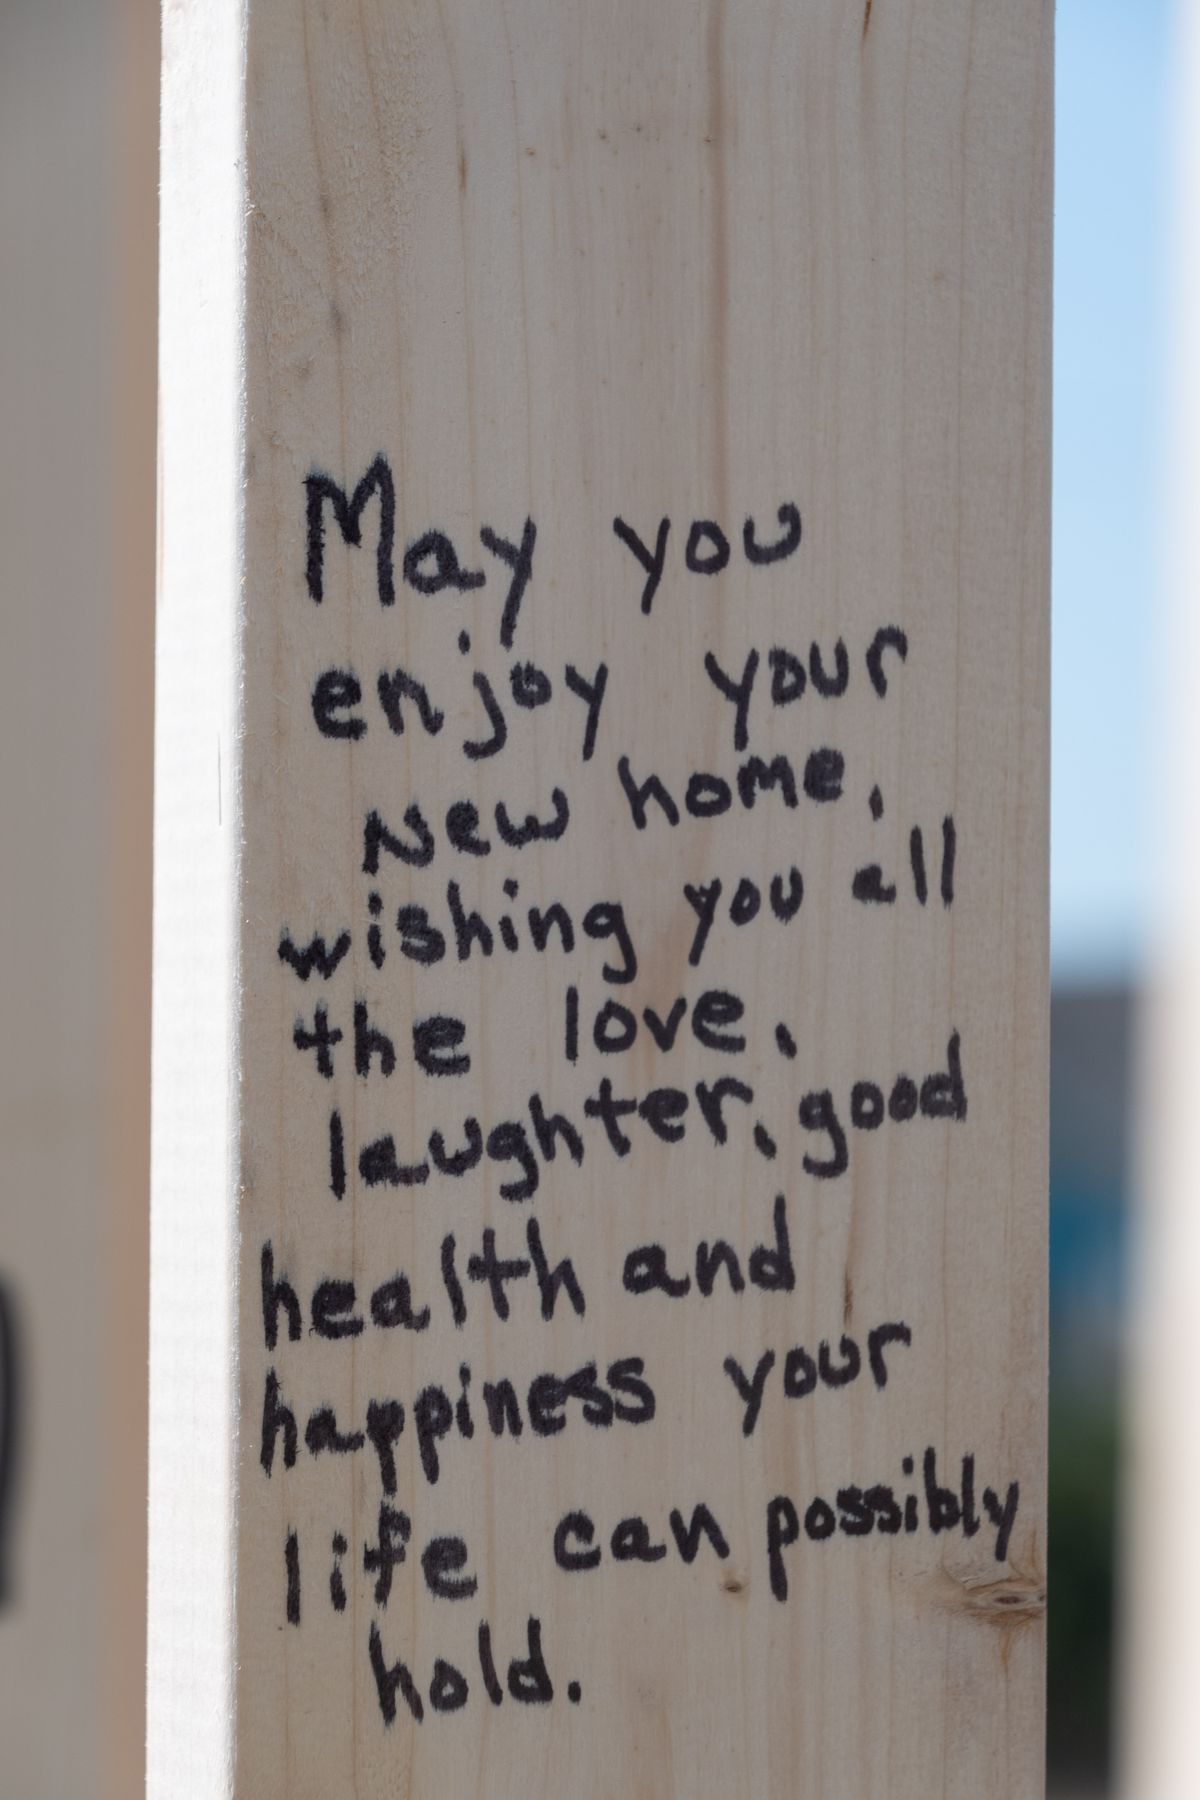 May you
enjoy your
New home,
wishing you all
the love,
laughter, good
health and
happiness your
life can possibly
hold.